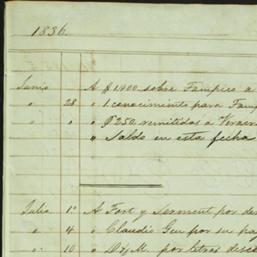 1836.
Junio A $1.400 sobre Tampico a
" 28 " 1. conocimiento para Tam
" " " $250. remitidos a Veracr
" Saldo en esta fecha
Julio 1º A Fort y Serment por de
" 4 " Claudio Gen por su pag
" 10 " D. y M. por letras desc